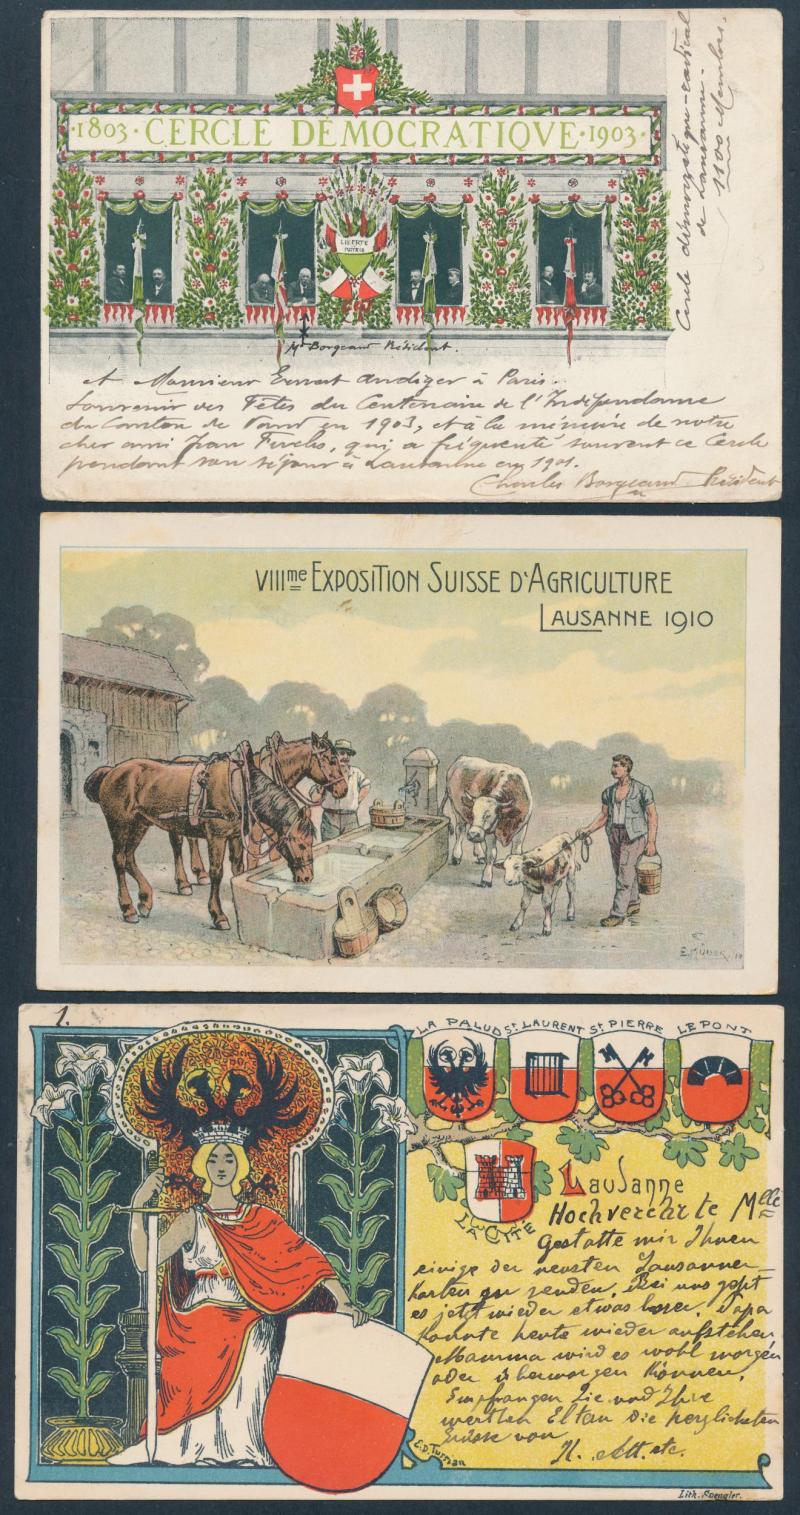 ·1803· CERCLE DÉMOCRATIQVE ·1903·
LIBERTÉ
PATRIE
Cercle démocratique-radical
de Lausanne -
1800 Membres.
Mr Borgeaud Président.
et Monsieur Ernest à Paris.
Souvenir des Fêtes du Centenaire de l'Indépendance
du Canton de Vaud en 1903, et à la mémoire de notre
cher ami Jean, qui a fréquenté souvent ce Cercle
pendant son séjour à Lausanne en 1901.
Charles Borgeaud Président
VIIIme EXPOSITION SUISSE D'AGRICULTURE
LAUSANNE 1910
1.
LA PALUD St. LAURENT St. PIERRE LE PONT
LA CITÉ
Lausanne
Hochverehrte Mlle
Gestatte mir Ihnen
einige der neusten Lausanner-
karten zu senden. Bei uns geht
es jetzt wieder etwas besser. Papa
konnte heute wieder aufstehen
Mamma wird es wohl morgen
oder übermorgen können.
Empfangen Sie und Ihre
werthen Eltern die herzlichsten
Grüsse von
E.D. Turrian
Lith. Spengler.